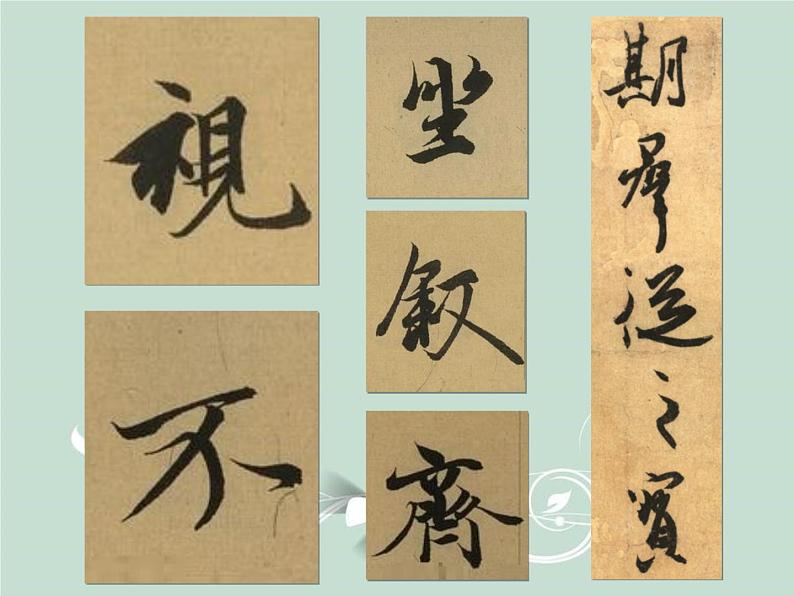 視
不
坐
叙
齊
期羣從之賓